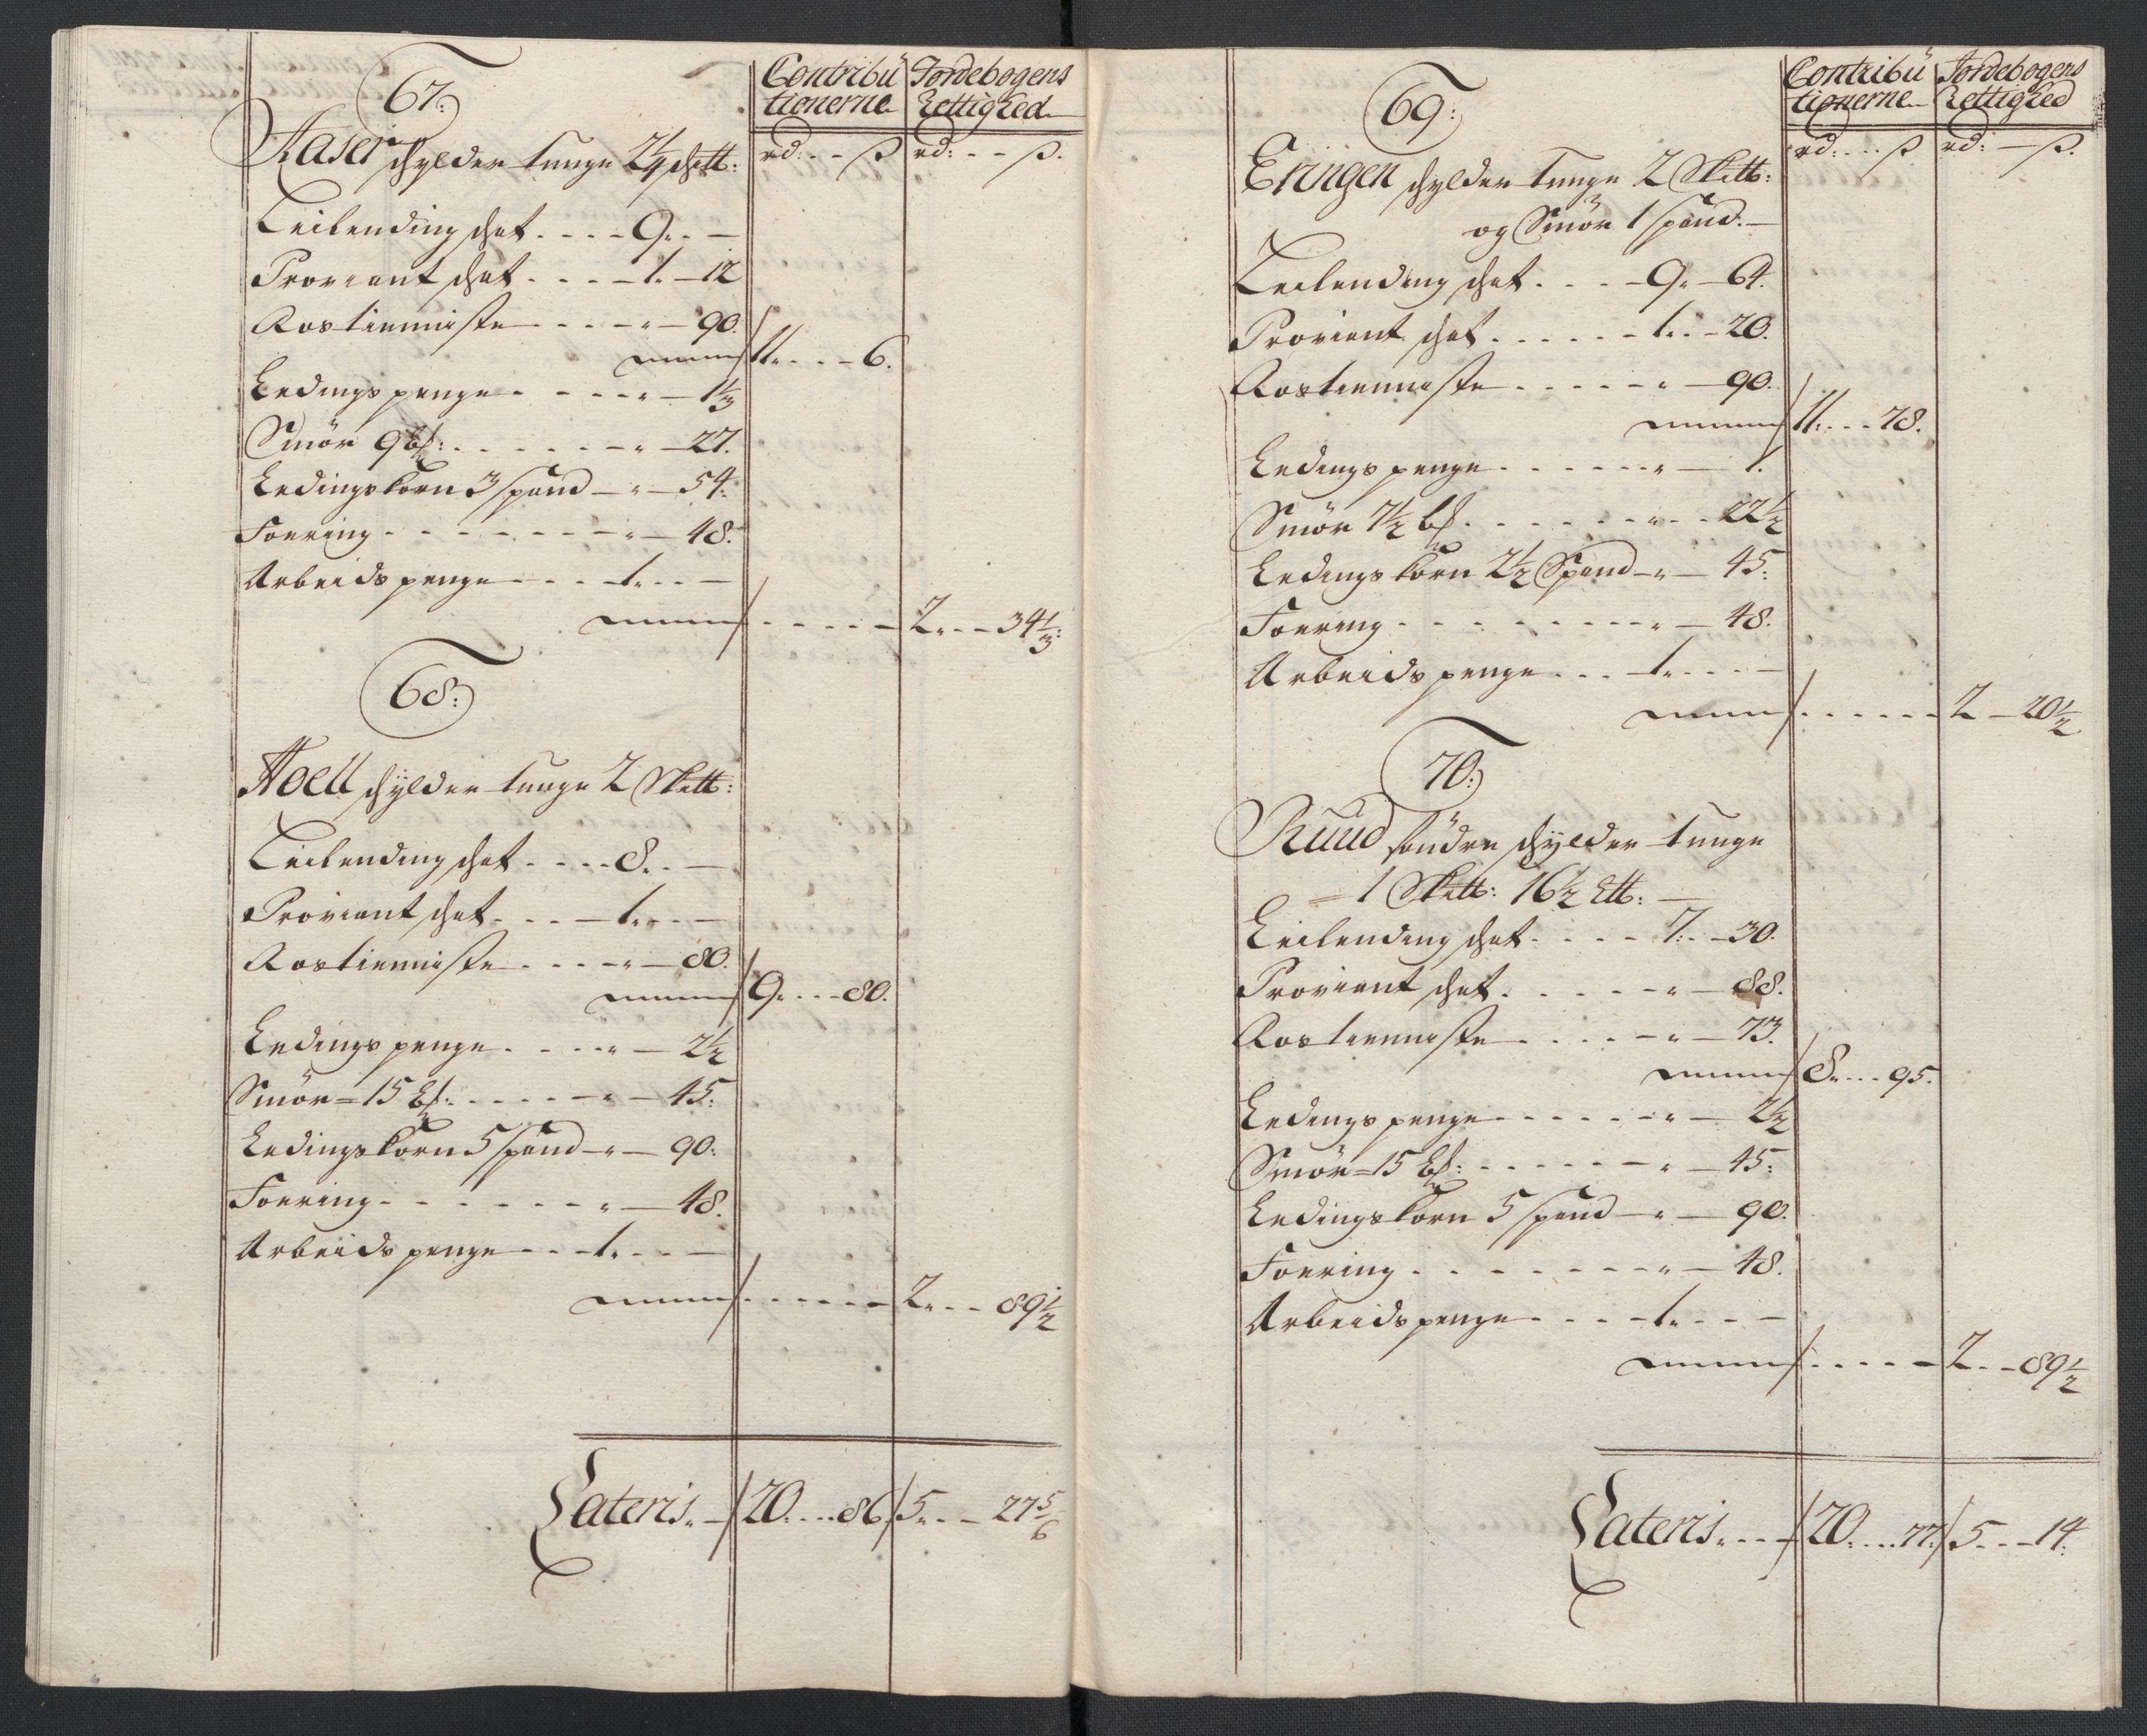 67:
Contribu
tionerne
Jordebogens
Rettighed
rd: - - ß rd: - - ß.
Aaser schylder tunge 2 1/4 schtt:
Leilending schat - - - - 9 - -
Proviant schat - - - - 1 - 12
Rostienniste - - - - " - 90.
11 - - - 6.
Ledings penge - - - - " - 1 1/3
Smör 9 bß: - - - - - " - 27.
Ledingskorn 3 spand - " - 54:
Foering - - - - - - - " - 48.
Arbeids penge - - - 1 - - -
2 - - 34 1/3:
68:
Hoell schylder tunge 2 Skttt:
Leilending schat - - - - 8 - -
Proviant schat - - - - 1 - - -
Rostienniste - - - - " - 80.
9 - - - 80.
Ledings penge - - - - " - 2 1/2
Smör = 15 bß: - - - - - " - 45:
Ledingskorn 5 spand - " - 90:
Foering - - - - - - - " - 48.
Arbeids penge - - - 1 - - -
2 - - 89 1/2
Lateris. - 20 - - - 86 5 - - 27 5/6
69:
Contribu
tionerne
Jordebogens
Rettighed
rd: - - ß rd: - ß.
Eningen schylder tunge 2 Skttt:
og Smör 1 spand. -
Leilending schat - - - - 9 - 64.
Proviant schat - - - - - 1 - - 20.
Rostienniste - - - - - " - 90.
11 - - - 78.
Ledings penge - - - - - " - 1.
Smör 7 1/2 bß - - - - - " - - 22 1/2
Ledings korn 2 1/2 Spand - " - 45:
Foering - - - - - - - " - 48.
Arbeids penge - - - 1 - - -
2 - 20 1/2
70:
Ruud söndre schylder tunge
1 Skttt: 16 1/2 Ltt: -
Leilending schat - - - - 7 - - 30.
Proviant schat - - - - - " - 88.
Rostienniste - - - - - " - 73.
8 - - - 95.
Ledings penge - - - - - " - 2 1/2
Smör = 15 bß: - - - - - " - 45:
Ledingskorn 5 spand - " - 90.
Foering - - - - - - - " - 48.
Arbeids penge - - - 1 - - -
2 - - 89 1/2
Lateris - - - 20 - - - 77 5 - - - 14.